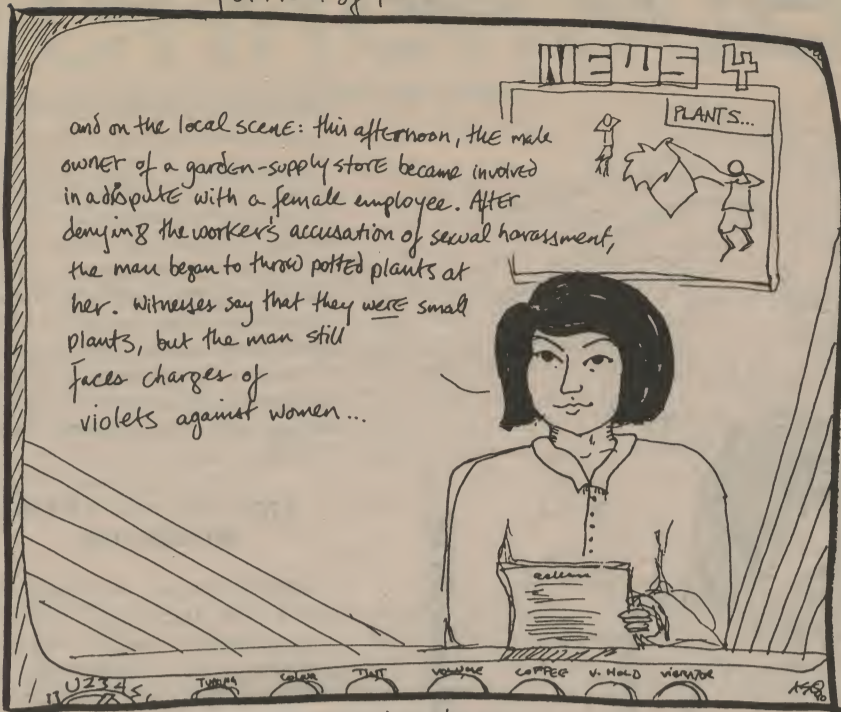 NEWS 4
PLANTS...
and on the local scene: this afternoon, the male
owner of a garden-supply store became involved
in a dispute with a female employee. After
denying the worker's accusation of sexual harassment,
the man began to throw potted plants at
her. Witnesses say that they were small
plants, but the man still
faces charges of
violets against women...
U 2 3 4 5
COLOUR TINT VOLUME COFFEE V. HOLD VIBRATOR